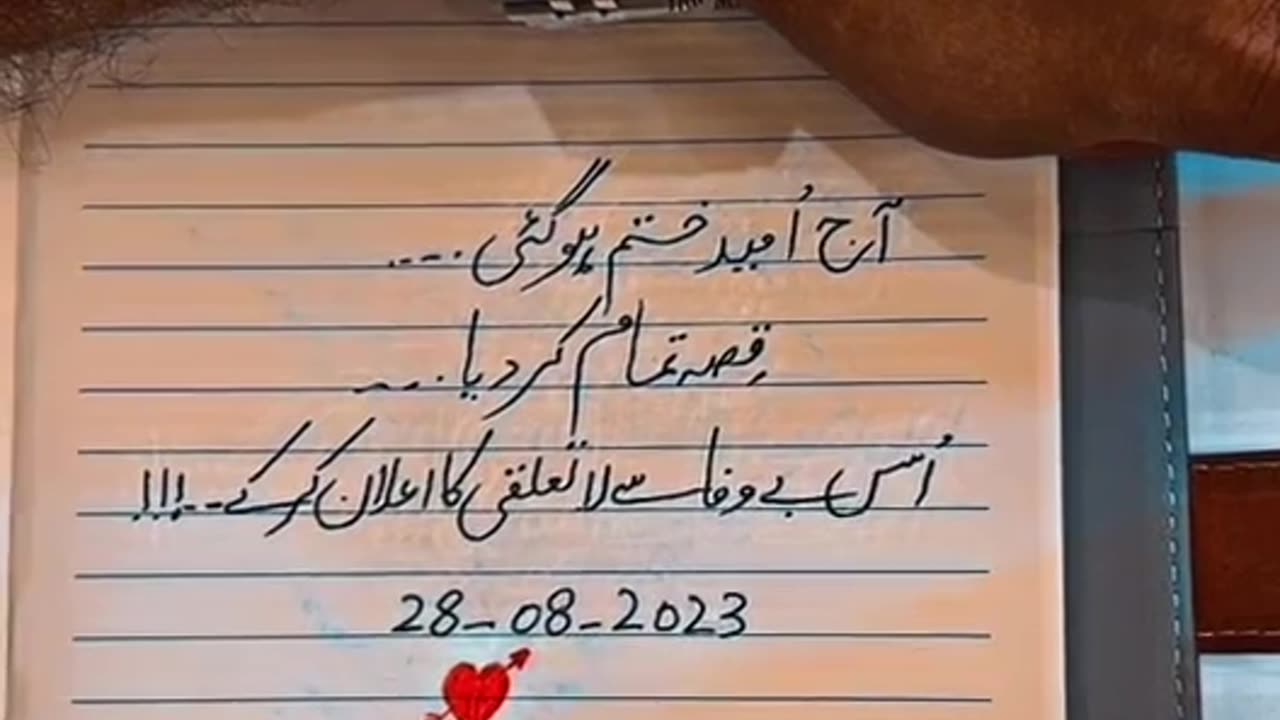 آج اُمید ختم ہوگئی ....
قِصہ تمام کر دیا ....
اُس بے وفا سے لا تعلقی کا اعلان کر کے ..!!!
28-08-2023